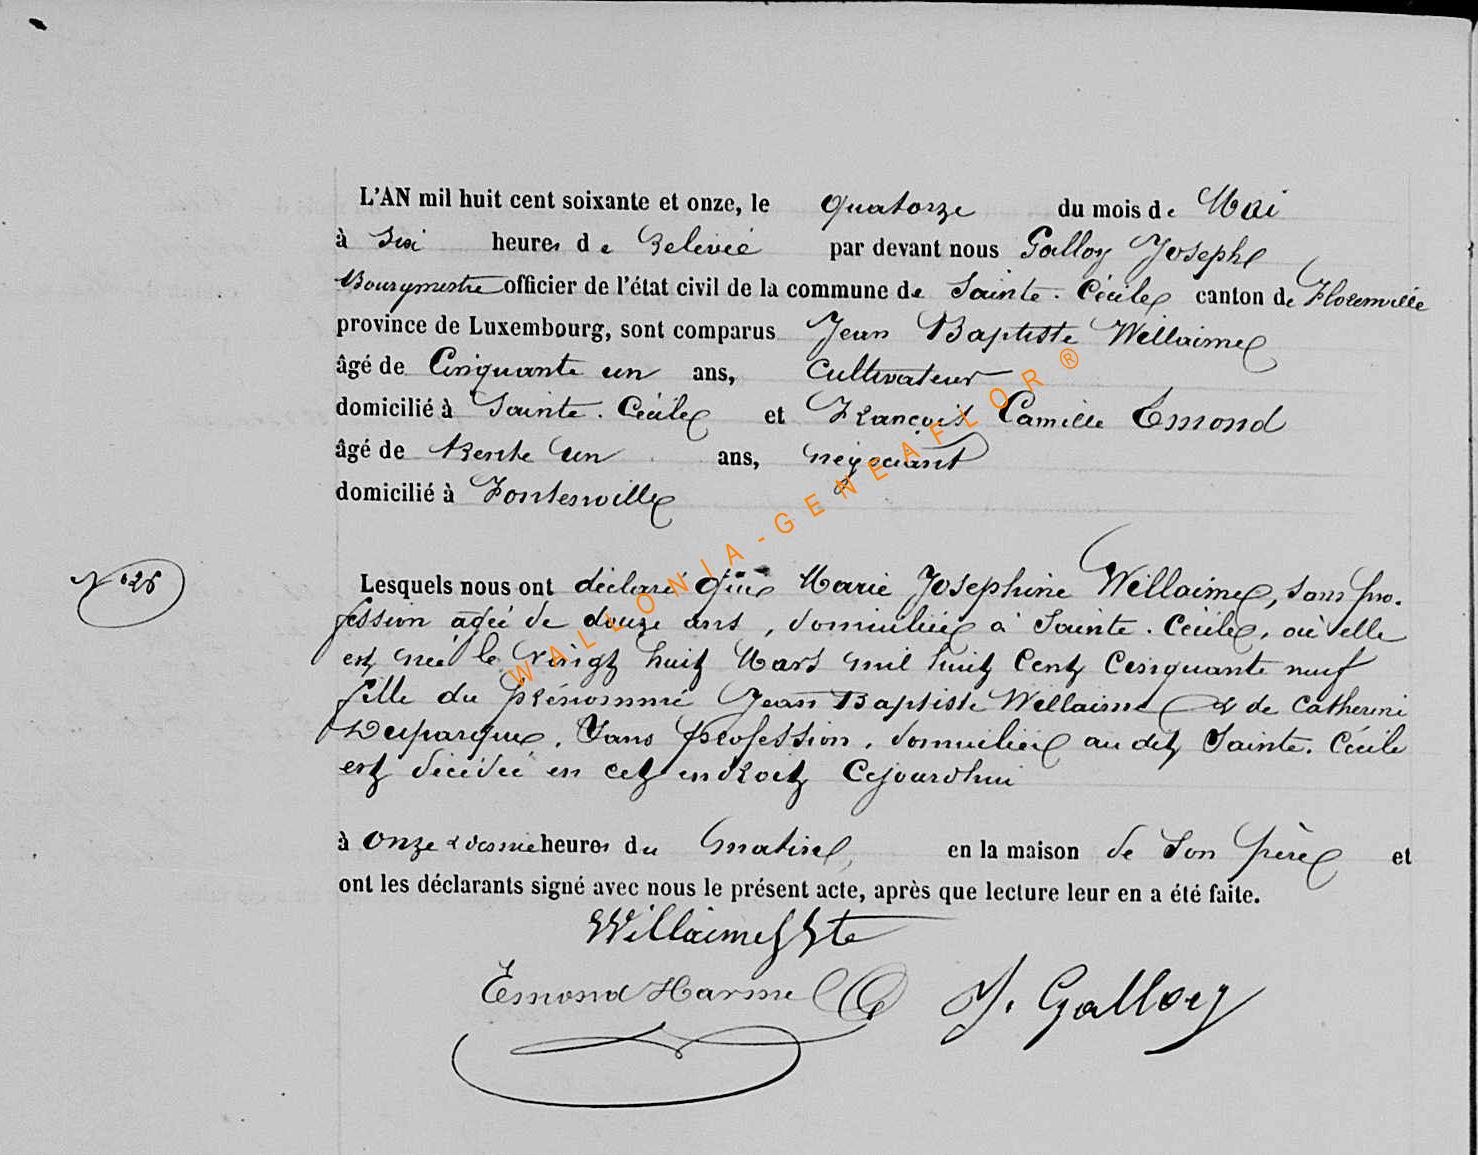 L'AN mil huit cent soixante et onze, le quatorze du mois de Mai
à Six heures de Relevée par devant nous Galloy Joseph
Bourgmestre officier de l'état civil de la commune de Sainte. Cécile canton de Florenville
province de Luxembourg, sont comparus Jean Baptiste Willaime
âgé de Cinquante un ans, Cultivateur
domicilié à Sainte. Cécile et François Camille Emond
âgé de trente un ans, négociant
domicilié à Fontenoille
N° 26
Lesquels nous ont déclaré que Marie Josephine Willaime, sans pro.
fession agée de douze ans, domiciliée à Sainte. Cécile, où elle
est née le vingt huit Mars mil huit Cent Cinquante neuf
fille du prénommé Jean Baptiste Willaime & de Catherine
Duparque, Sans profession, domiciliée au dit Sainte. Cécile
est décédée en cet endroit Cejourdhui
à onze & demie heures du matin, en la maison de Son père et
ont les déclarants signé avec nous le présent acte, après que lecture leur en a été faite.
Willaime Bte
Emond Harmel J. Galloy
WALLONIA-GENEAFLOR®